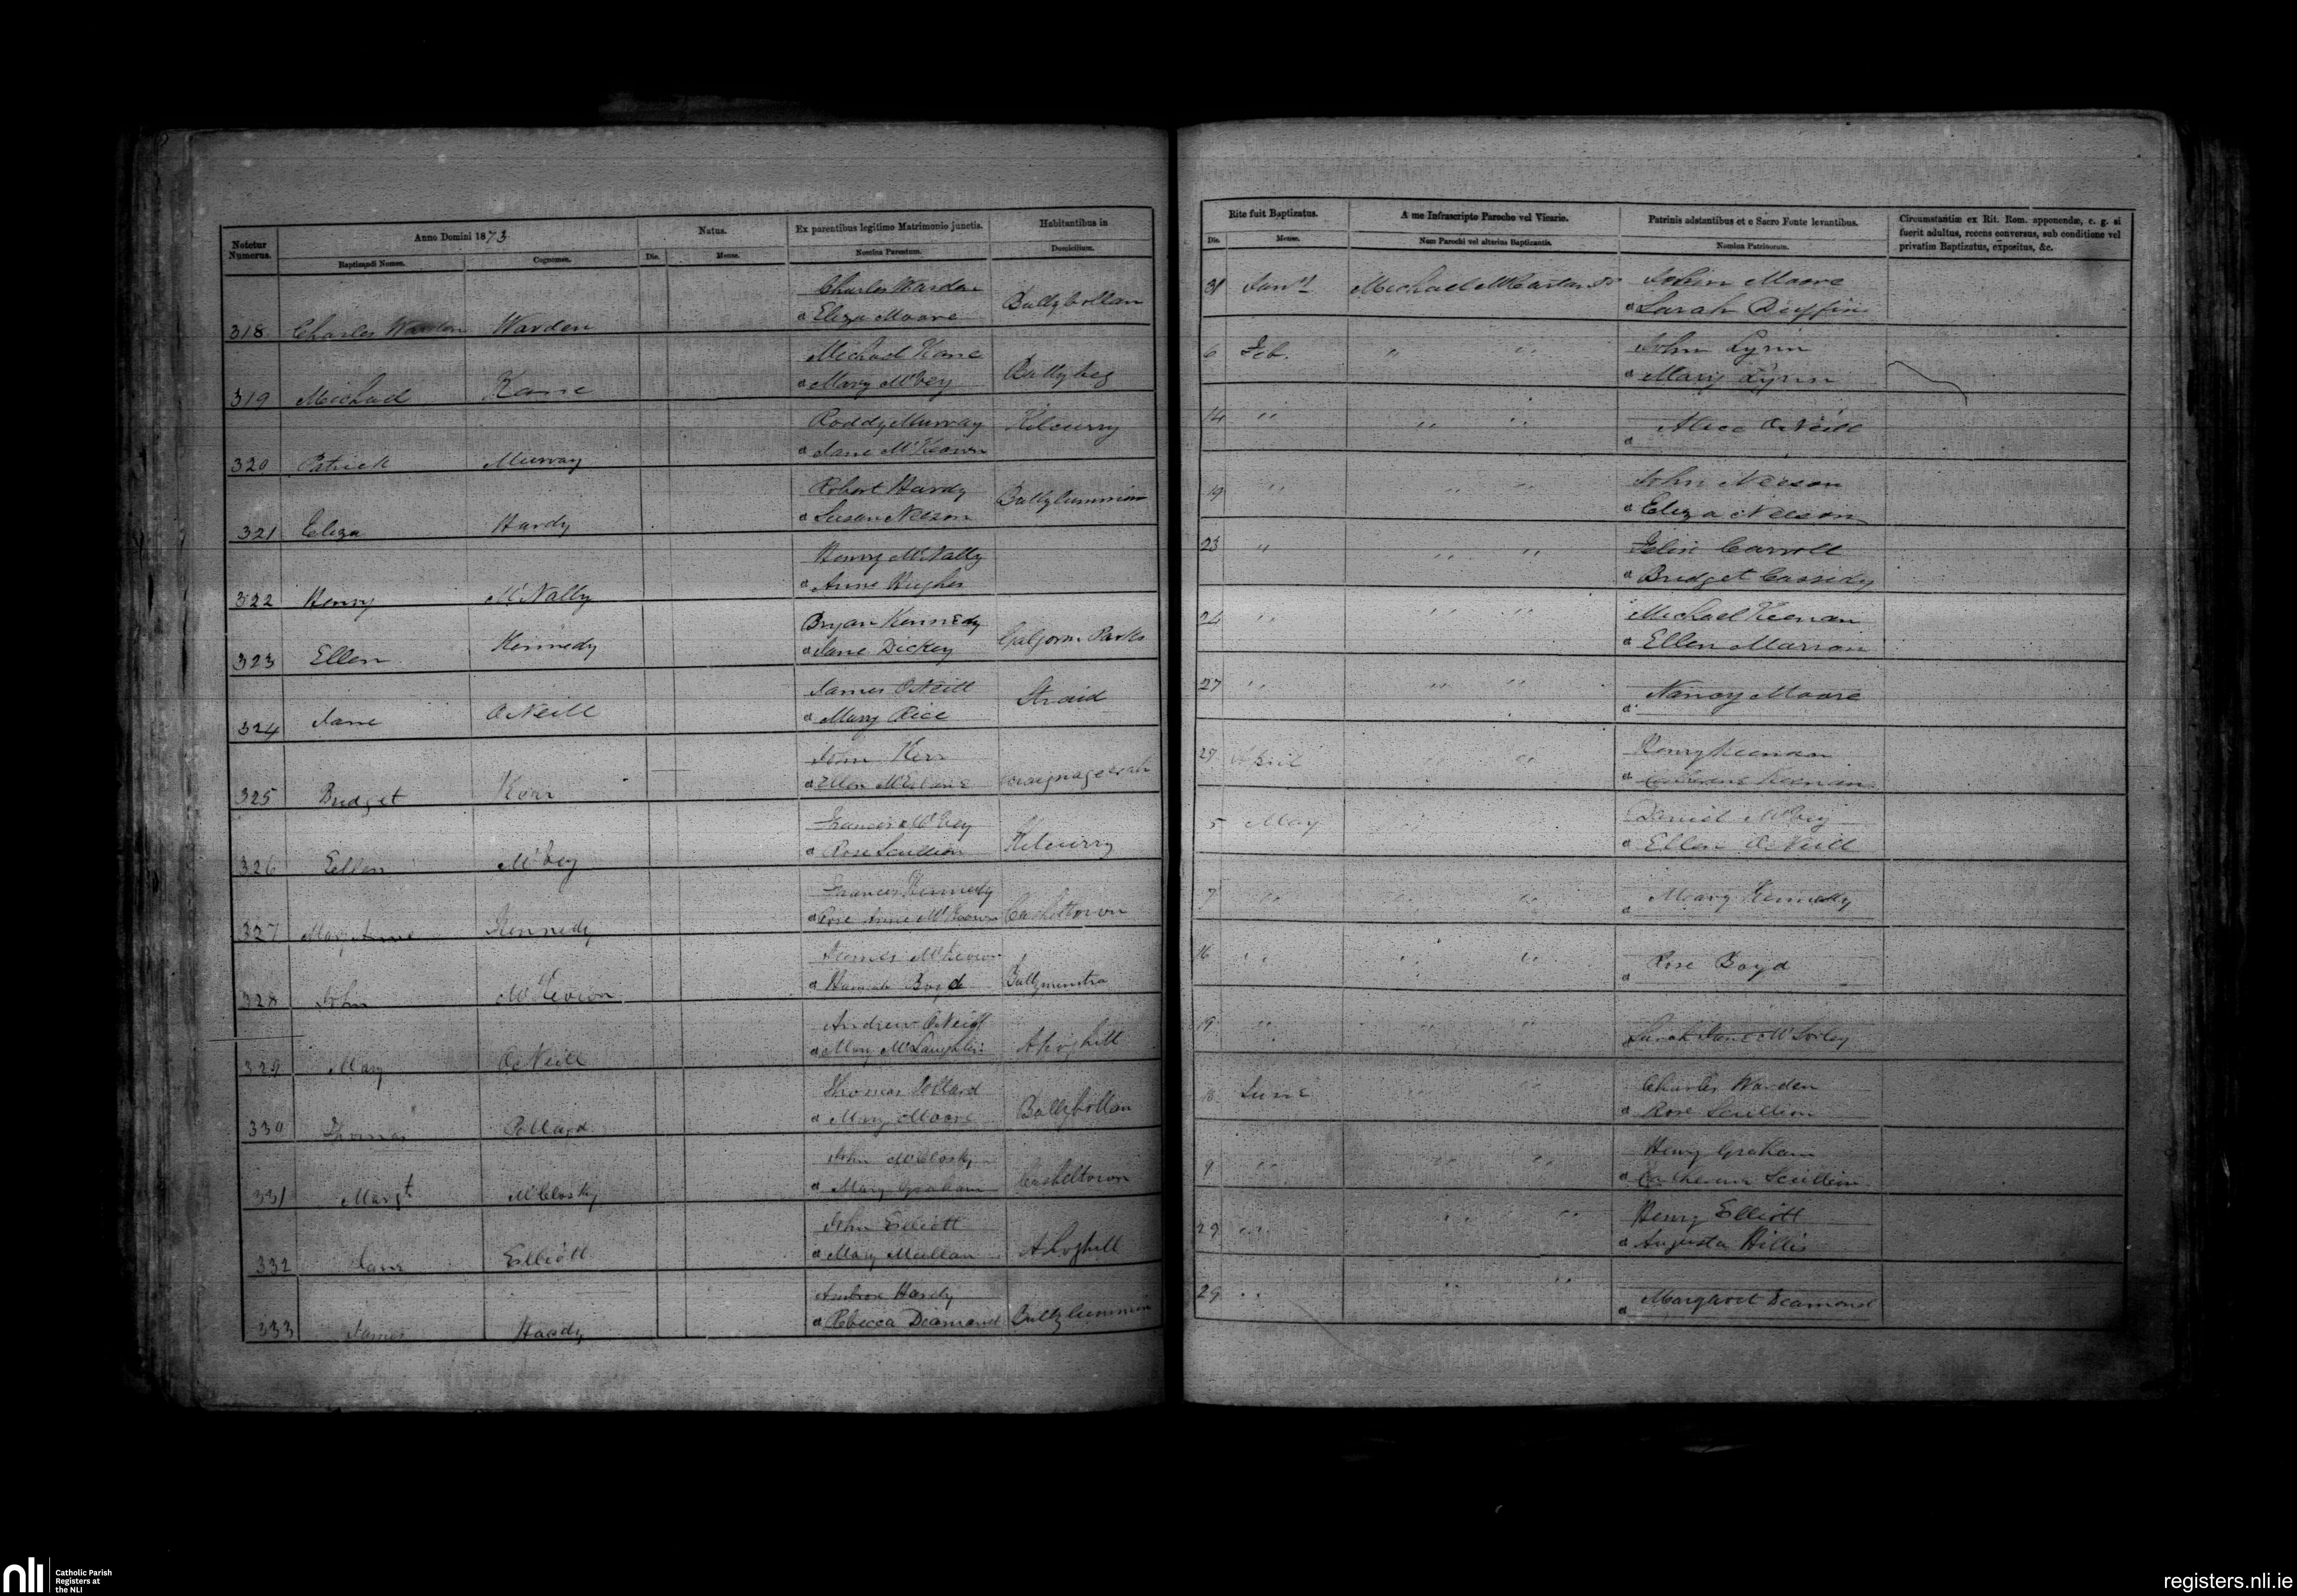 Notetur Numerus.
Anno Domini 1873
Baptizandi Nomen.
Cognomen.
Natus.
Die.
Mense.
Ex parentibus legitimo Matrimonio junctis.
Nomina Parentum.
Habitantibus in
Domicilium.
Charles Warden
318 Charles Warden Warden
& Eliza Moore Ballybollan
Michael Kane
319 Michael Kane
& Mary McVey Ballybeg
Roddy Murray Kilcurry
320 Patrick Murray
& Jane McKeown
Robert Hardy
321 Eliza Hardy
& Susan Neeson Ballylummin
Henry McNally
322 Henry McNally
& Anne Hughes
Bryan Kennedy
323 Ellen Kennedy
& Jane Dickey Galgorm Parks
James O'Neill
324 Jane O'Neill
& Mary Rice Straid
John Kerr
325 Bridget Kerr
& Ellen
Francis McVey
326 Ellen McVey
& Rose Scullion Kilcurry
Francis Kennedy
327 Mary Anne Kennedy
& Rose Anne McKeown Casheltown
James McKeown
328 John McKeown
& Hannah Boyd
Andrew O'Neill
329 Mary O'Neill
& Mary McLaughlin Ahoghill
Thomas Pollard
330 Thomas Pollard
& Mary Moore Ballybollan
John McClosky
331 Margt McClosky
& Mary Graham Casheltown
John Elliott
332 Jane Elliott
& Mary Mullan Ahoghill
Ambrose Hardy
333 James Hardy
& Rebecca Diamond Ballylummin
Rite fuit Baptizatus.
Die.
Mense.
A me Infrascripto Parocho vel Vicario.
Nom Parochi vel alterius Baptizantis.
Patrinis adstantibus et e Sacro Fonte levantibus.
Nomina Patrinorum.
Circumstantiæ ex Rit. Rom. apponendæ, e. g. si
fuerit adultus, recens conversus, sub conditione vel
privatim Baptizatus, expositus, &c.
31 Jany Michael McCartan John Moore
& Sarah Duffin
6 Feb. " " John Lynn
& Mary Lynn
14 " " " Alice O'Neill
&
19 " " " John Neeson
& Eliza Neeson
23 " " " Felix Carroll
& Bridget Cassidy
" " " Michael Keenan
& Ellen Marron
27 " " " Nancy Moore
&
27 April " " Henry Keenan
& Keenan
5 May " Daniel McVey
& Ellen O'Neill
7 " " " Mary Kennedy
&
16 " " " Rose Boyd
&
19 " " " Sarah Jane McSorley
June " " Charles Warden
& Rose Scullion
9 " " " Henry Graham
& Catherine Scullion
29 " " " Henry Elliott
& Augusta Hillis
29 " " " Margaret Diamond
&
nli
Catholic Parish
Registers at
the NLI
registers.nli.ie